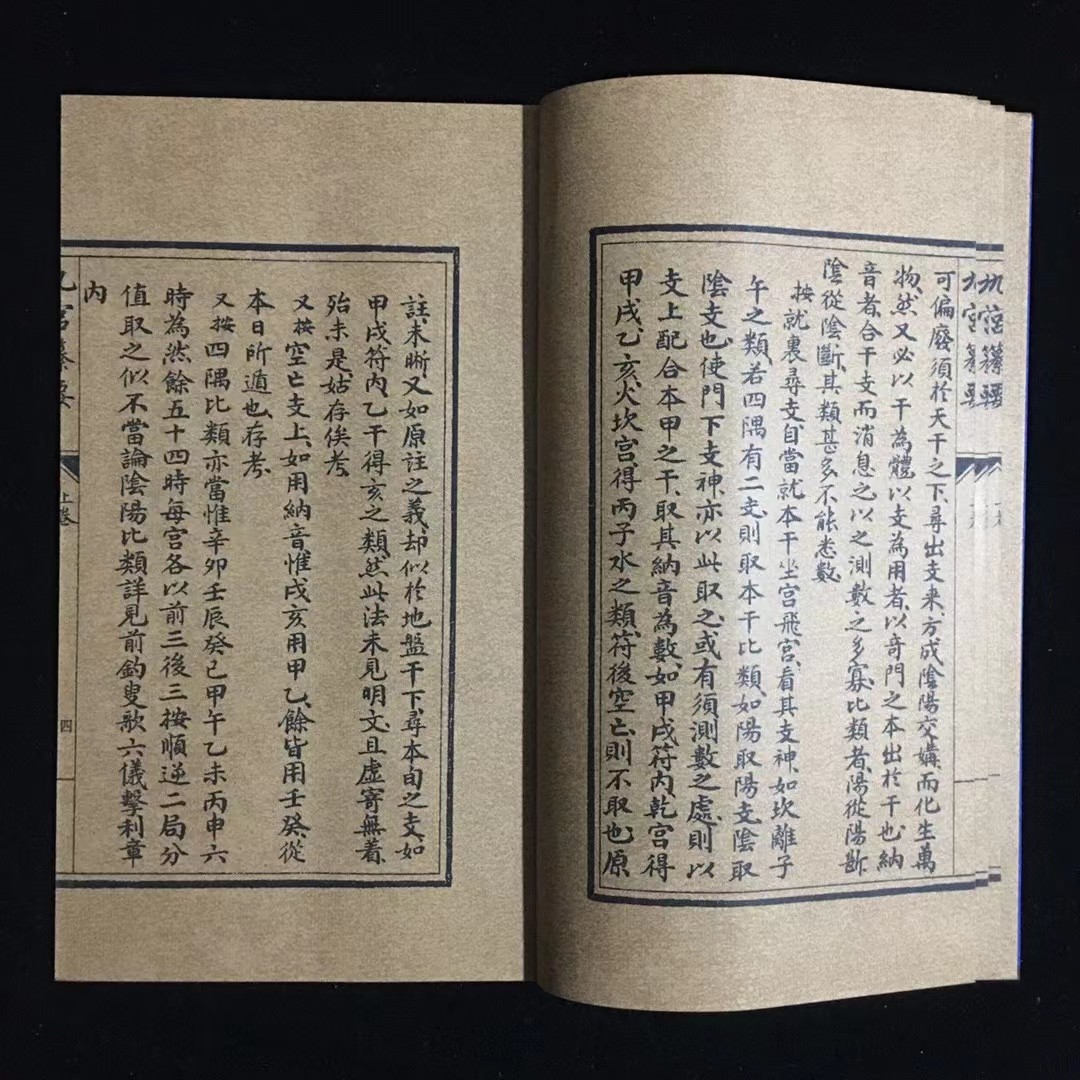 九宮纂要
可偏廢須於天干之下、尋出支来、方成陰陽交媾、而化生萬
物、然又必以干為體以支為用者、以奇門之本出於干也、納
音者、合干支而消息之以之測數之多寡、比類者、陽從陽斷、
陰從陰斷、其類甚多不能悉數
按就裏尋支、自當就本干坐宮飛宮、看其支神、如坎離子
午之類、若四隅有二支、則取本干比類、如陽取陽支陰取
陰支也、使門下支神、亦以此取之、或有須測數之處、則以
支上配合本甲之干、取其納音為數、如甲戌符內、乾宮得
甲戌乙亥火、坎宮得丙子水之類、符後空亡、則不取也、原
註、未晰、又如原註之義、却似於地盤干下、尋本旬之支、如
甲戌符內、乙干得亥之類、然此法未見明文、且虛寄無着、
殆未是、姑存俟考、
又按空亡支上、如用納音、惟戌亥用甲乙、餘皆用壬癸、從
本日所遁也、存考、
又按四隅比類亦當惟辛卯壬辰癸巳甲午乙未丙申六
時為然餘五十四時每宮各以前三後三按順逆二局分
值取之似不當論陰陽比類詳見前釣叟歌六儀擊利章
內
九宮纂要
上卷
四